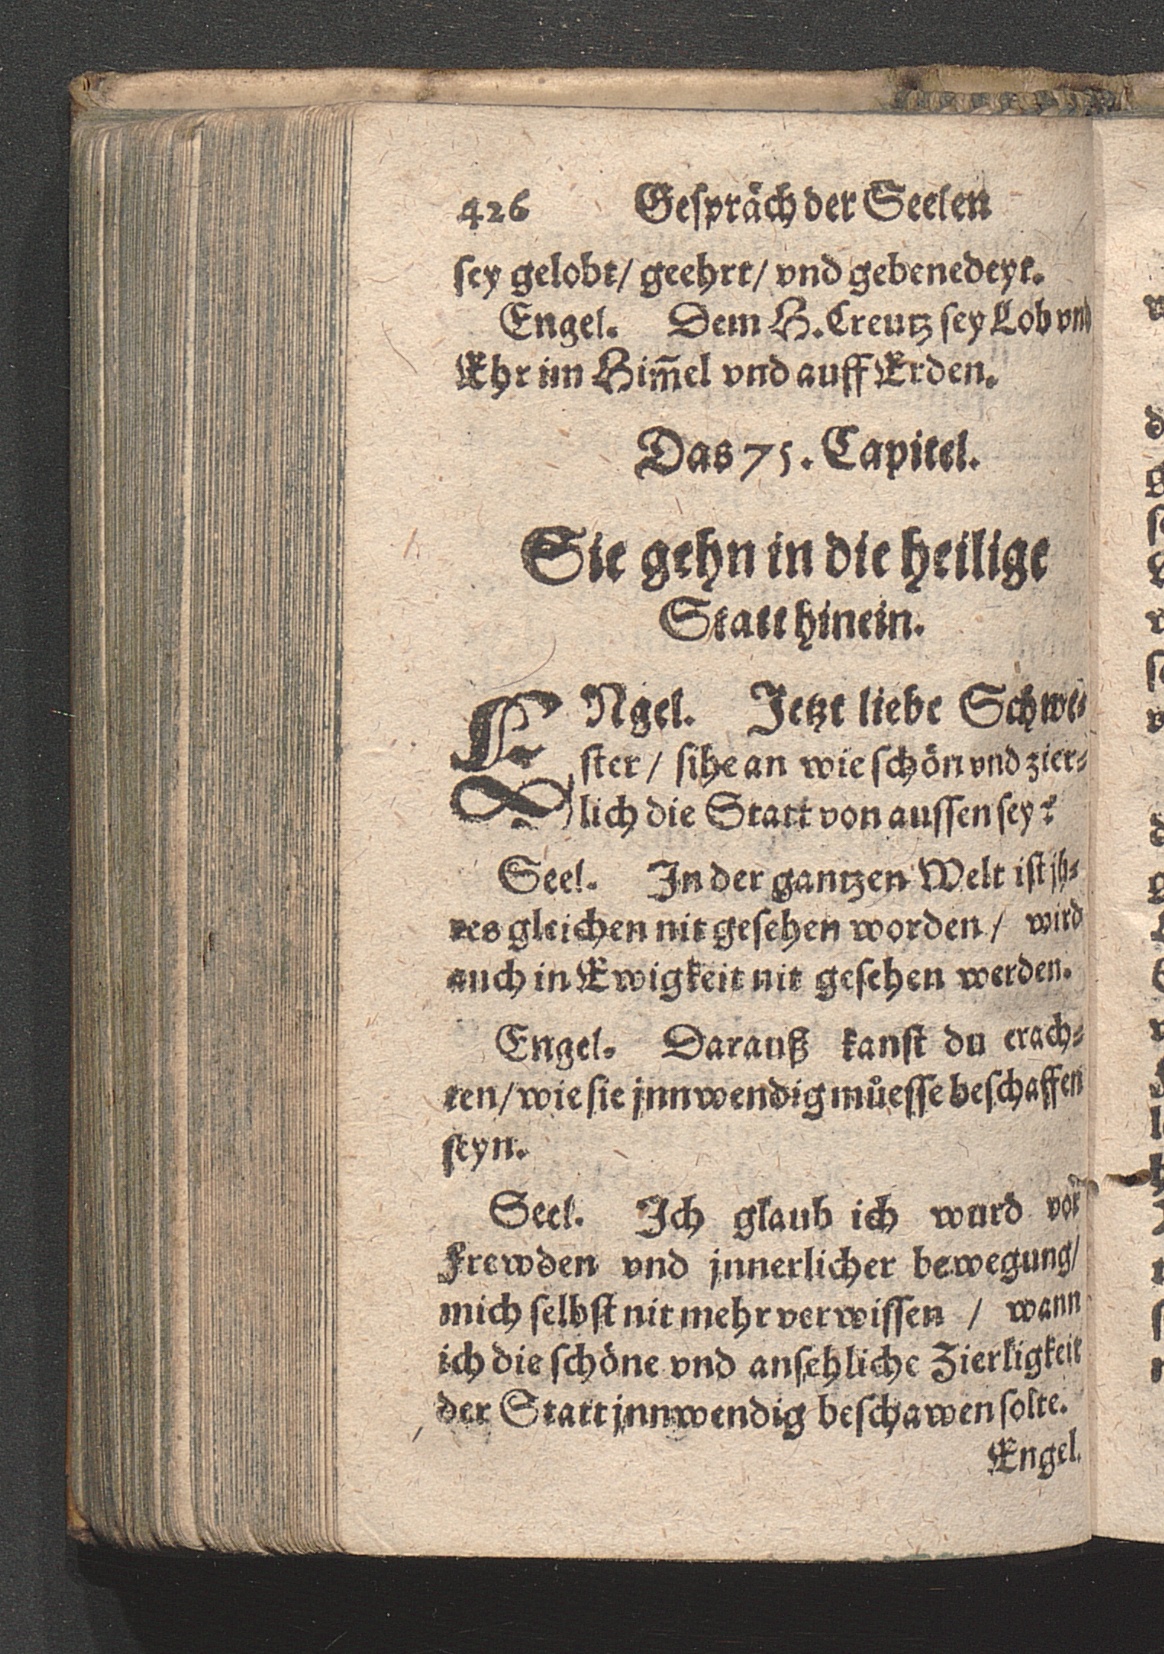 426 Gespräch der Seelen
sey gelobt/ geehrt/ vnd gebenedeyt.
Engel. Dem H. Creutz sey Lob vnd
Ehr im Him̃el vnd auff Erden.
Das 75. Capitel.
Sie gehn in die heilige
Statt hinein.
ENgel. Jetzt liebe Schwe-
ster / sihe an wie schön vnd zier-
lich die Statt von aussen sey?
Seel. In der gantzen Welt ist jh-
res gleichen nit gesehen worden / wird
auch in Ewigkeit nit gesehen werden.
Engel. Darauß kanst du erach-
ten/ wie sie jnnwendig můesse beschaffen
seyn.
Seel. Ich glaub ich wurd vor
Frewden vnd jnnerlicher bewegung/
mich selbst nit mehr verwissen / wann
ich die schöne vnd ansehliche Zierligkeit
der Statt jnnwendig beschawen solte.
Engel.